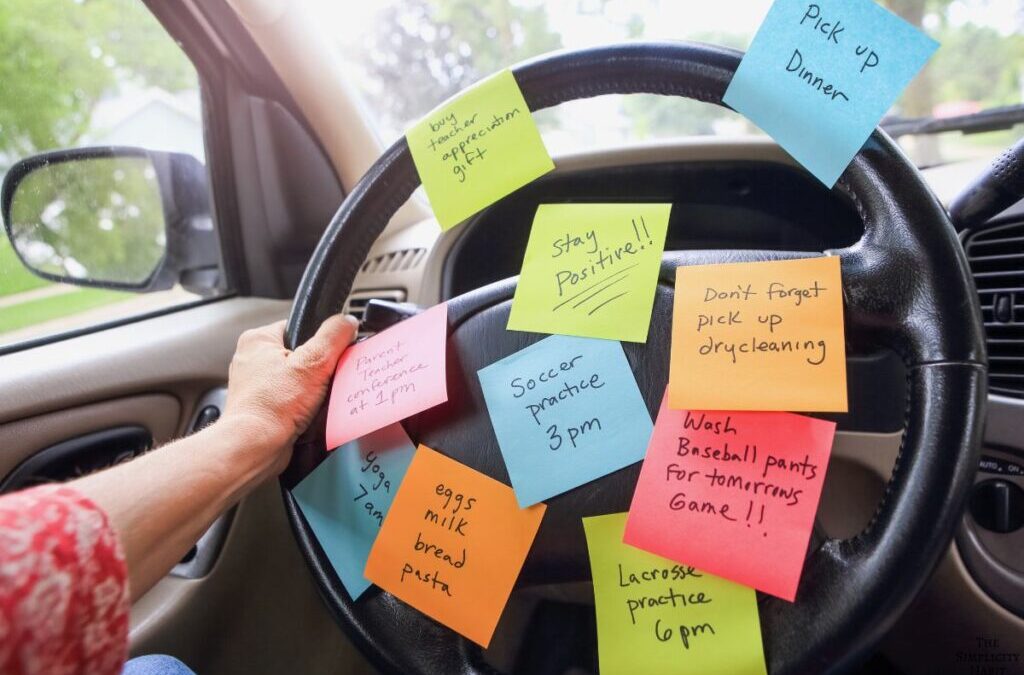 Pick up
Dinner
buy
teacher
appreciation
gift
Stay
Positive!!
Don't forget
pick up
drycleaning
Parent
Teacher
conference
at 1pm
Soccer
practice
3pm
Wash
Baseball pants
for tomorrows
Game!!
Yoga
7am
eggs
milk
bread
pasta
Lacrosse
practice
6pm
AUTO
ON
THE
SIMPLICITY
HABIT